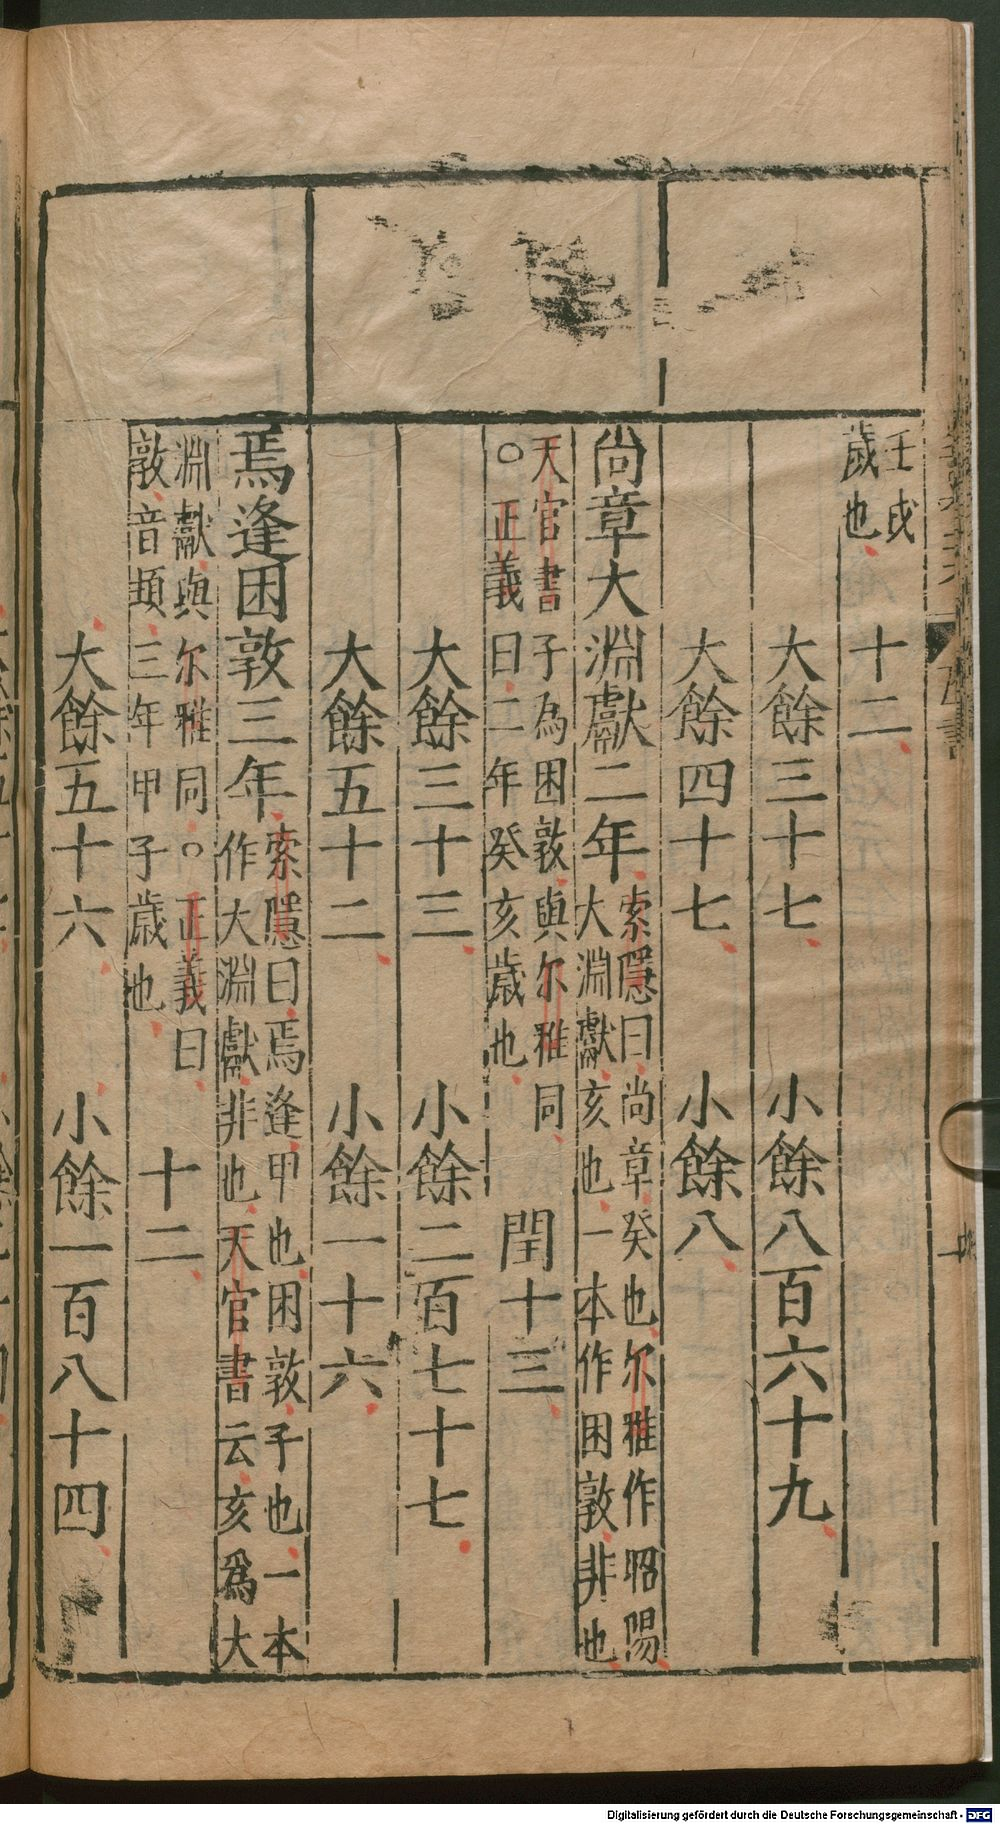 壬戌
歲也
十二
大餘三十七 小餘八百六十九
大餘四十七 小餘八
尚章大淵獻二年
索隱曰尚章癸也尔雅作昭陽
大淵獻亥也一本作困敦非也
天官書子為困敦與尔雅同
○正義曰二年癸亥歲也
閏十三
大餘三十三 小餘二百七十七
大餘五十二 小餘一十六
焉逢困敦三年
索隱曰焉逢甲也困敦子也一本
作大淵獻非也天官書云亥爲大
淵獻與尔雅同○正義曰
敦音頓三年甲子歲也
十二
大餘五十六 小餘一百八十四
Digitalisierung gefördert durch die Deutsche Forschungsgemeinschaft - DFG